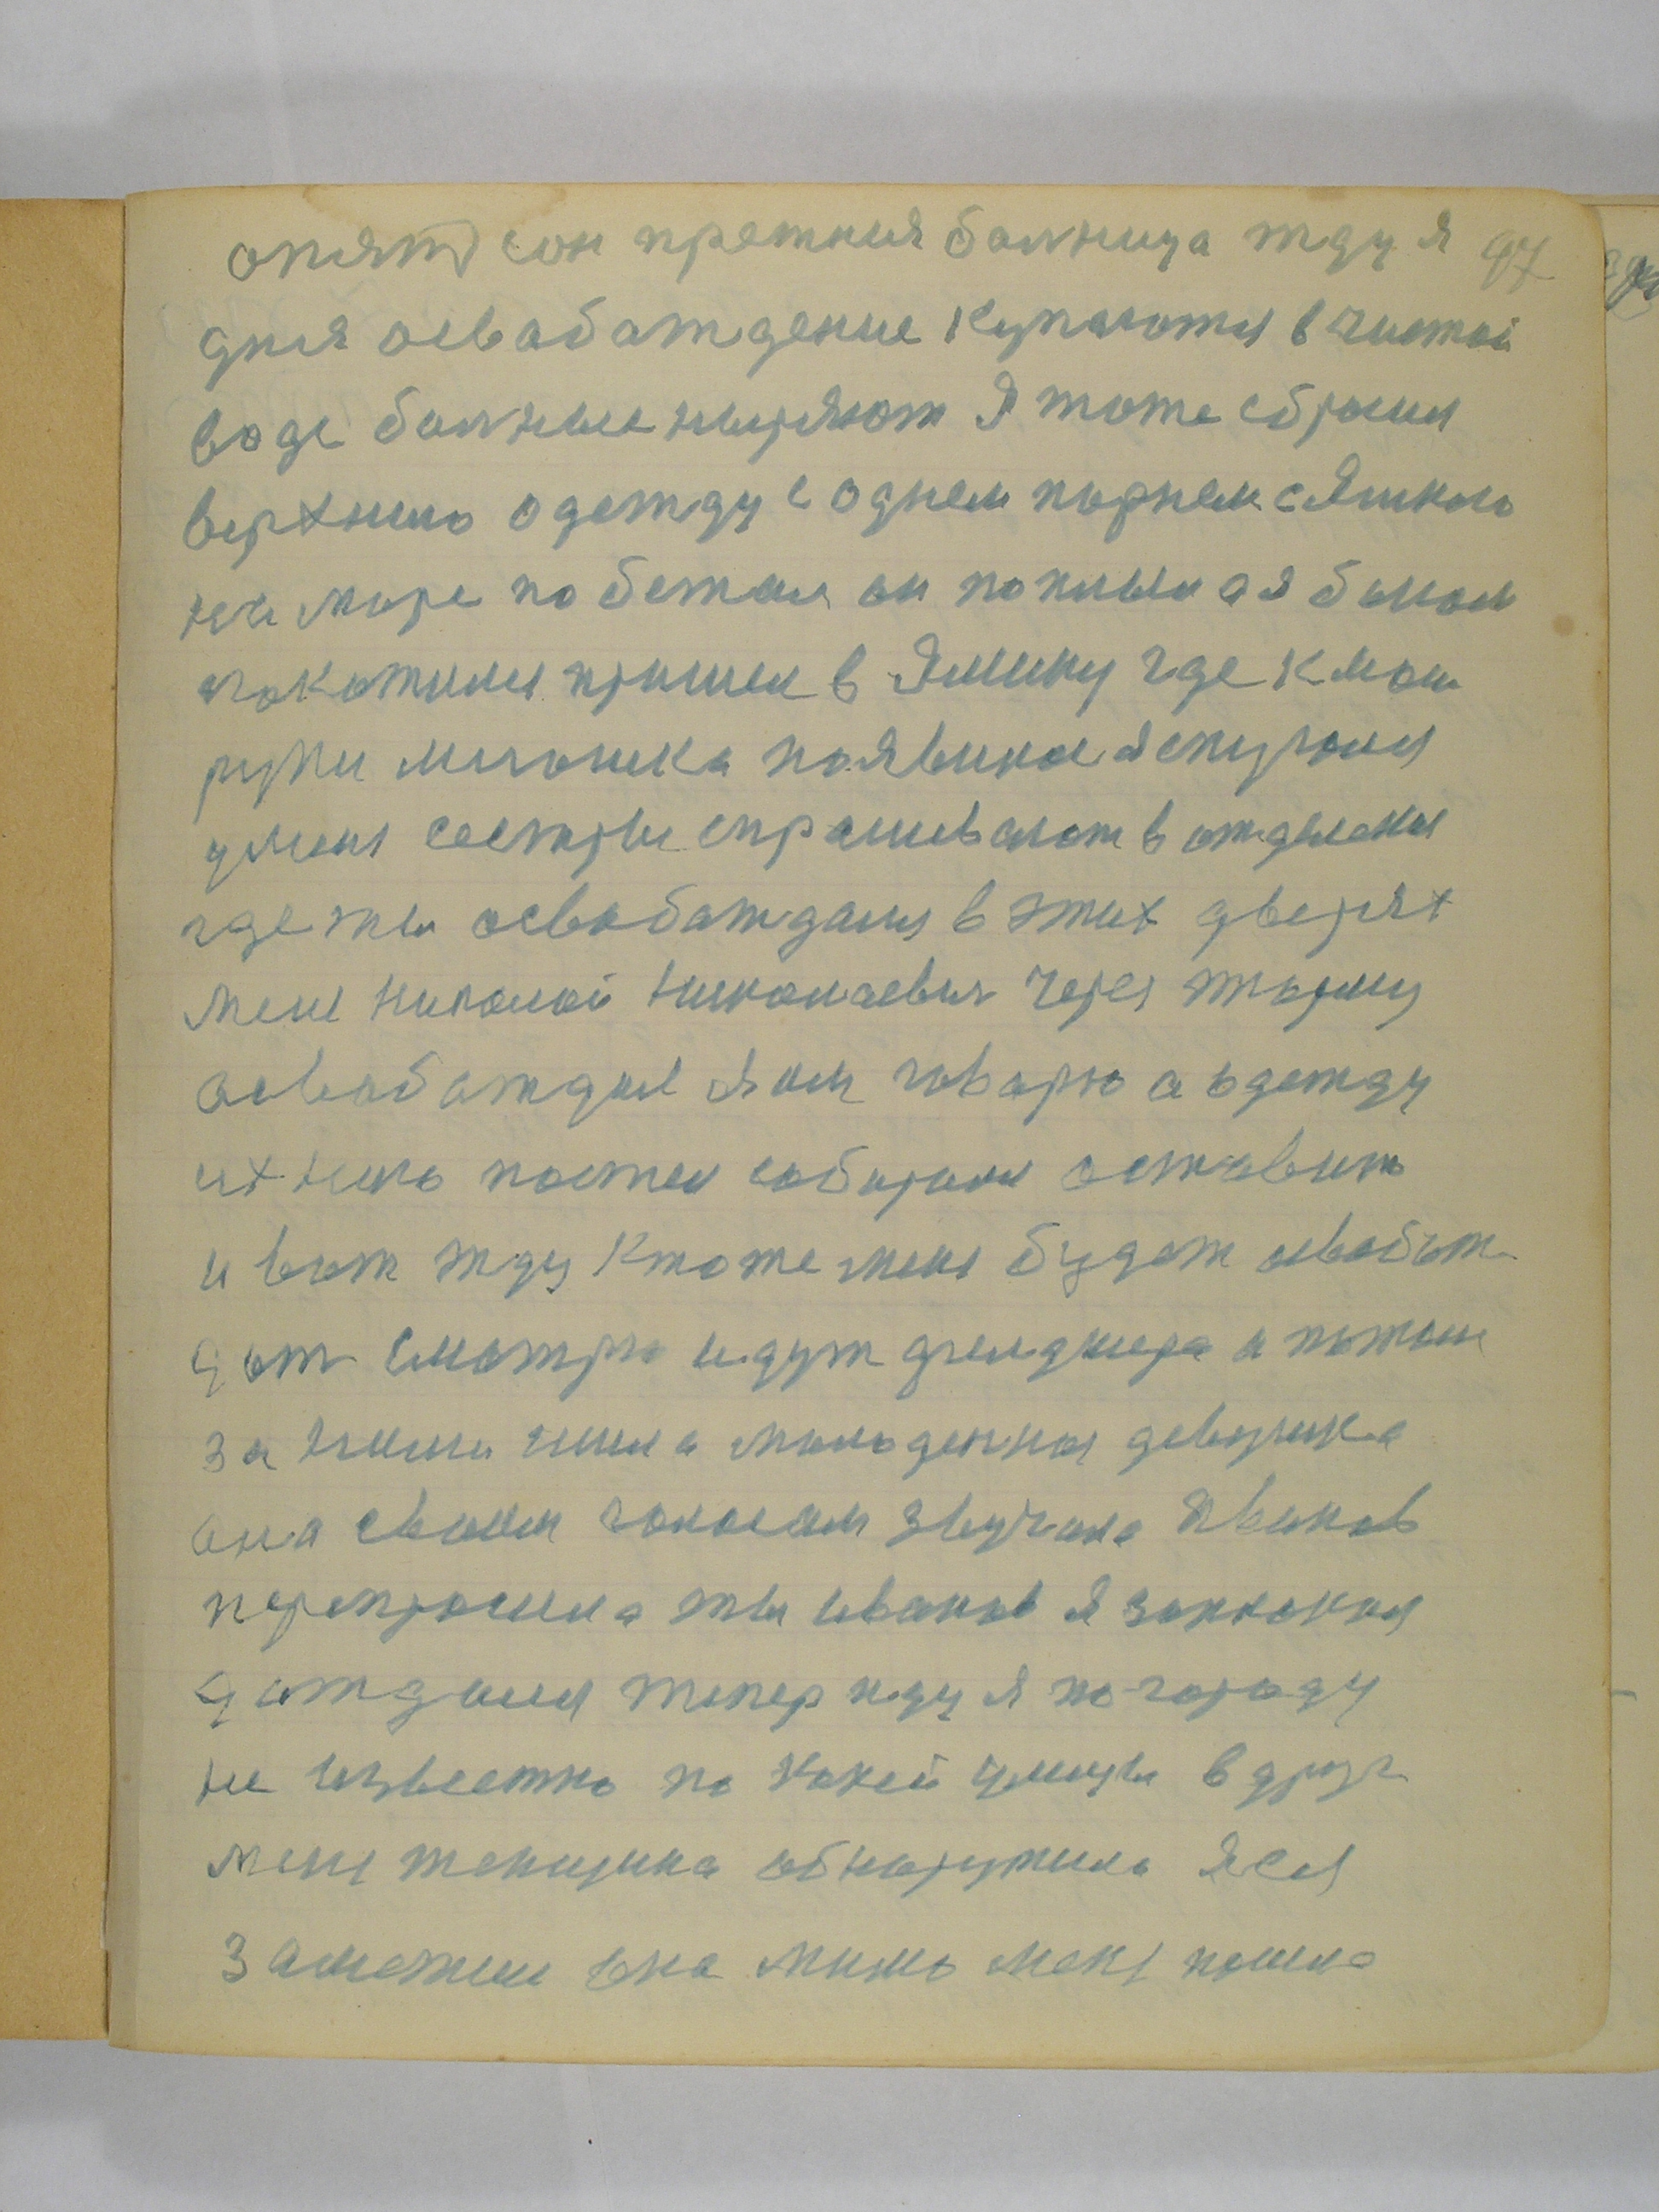 опять сон прежния балница жду я 97
дня освабаждение купаются в чистой
воде балные ныряют Я тоже сбрасил
верхнию одежду с однем парнем с Яшкою
на море побежал он поплыл а я боком
покотился пришел в Ямину где к моим
руки мигалика появилас я спугался
у меня сестры спрашевают в отделения
где ты освабаждался в этих дверях
меня Николай Николаевич через тюрму
освабаждал Я им говарю а одежду
ихнию постел сабирался оставит
и вот жду кто же меня будет освабаж
дат Смотрю идут дженджера а потом
за ними шила молоденкая девушка
она своим голосам звучала Иванов
перепросила ты иванов Я законился
дождался тепер иду я по городу
не известно по какей улицы вдруг
меня женщина обнаружила Я сел
Заметил она мимо меня пошла